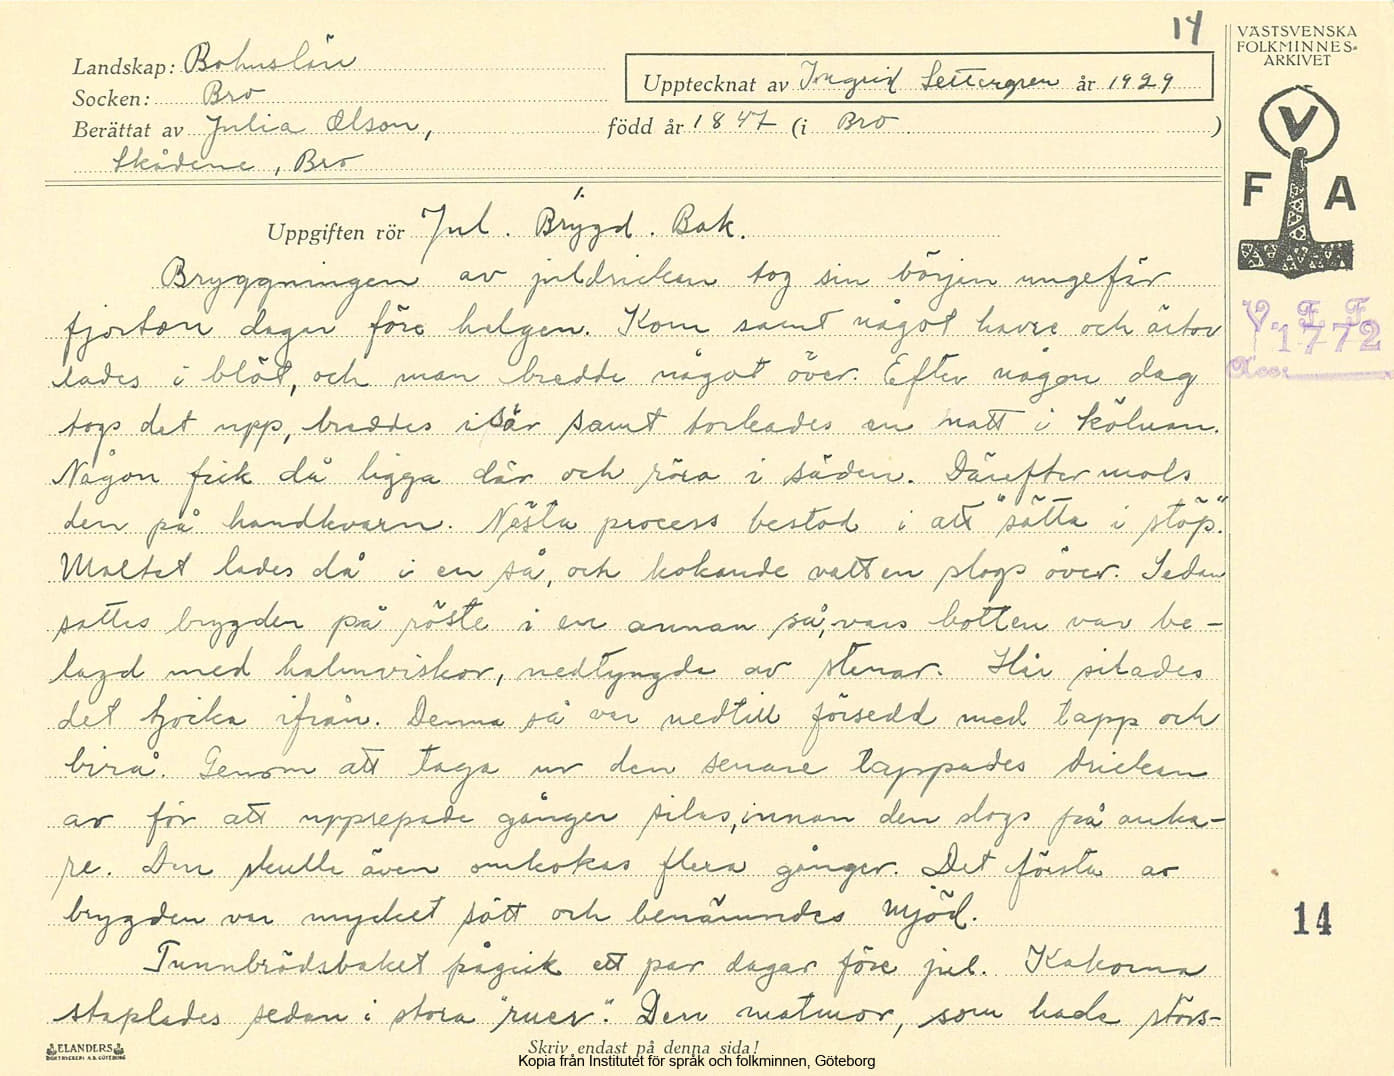 14
VÄSTSVENSKA
FOLKMINNES-
ARKIVET
Landskap: Bohuslän
Upptecknat av Ingrid Settergren år 1929
Socken: Bro
Berättat av Julia Olson, född år 1847 (i Bro )
Skådene, Bro
V
F A
Uppgiften rör Jul. Brygd. Bak.
Bryggningen av juldrickan tog sin början ungefär
fjorton dagar före helgen. Korn samt något havre och ärtor
lades i blöt, och man bredde något över. Efter någon dag
togs det upp, breddes isär samt torkades en natt i kölnan.
Någon fick då ligga där och röra i säden. Därefter mols
den på handkvarn. Nästa process bestod i att "sätta i stöp."
Maltet lades då i en så, och kokande vatten slogs över. Sedan
sattes brygden på röste i en annan så, vars botten var be-
lagd med halmviskor, nedtyngda av stenar. Här silades
det tjocka ifrån. Denna så var nedtill försedd med tapp och
birå. Genom att taga ur den senare tappades drickan
av för att upprepade gånger silas, innan den slogs på anka-
re. Den skulle även omkokas flera gånger. Det första av
brygden var mycket sött och benämndes mjöd.
Tunnbrödsbaket pågick ett par dagar före jul. Kakorna
staplades sedan i stora "ruer". Den matmor, som hade störs-
V. F. F.
1772
Acc.
14
ELANDERS
BOKTRYCKERI A.B. GÖTEBORG
Skriv endast på denna sida!
Kopia från Institutet för språk och folkminnen, Göteborg